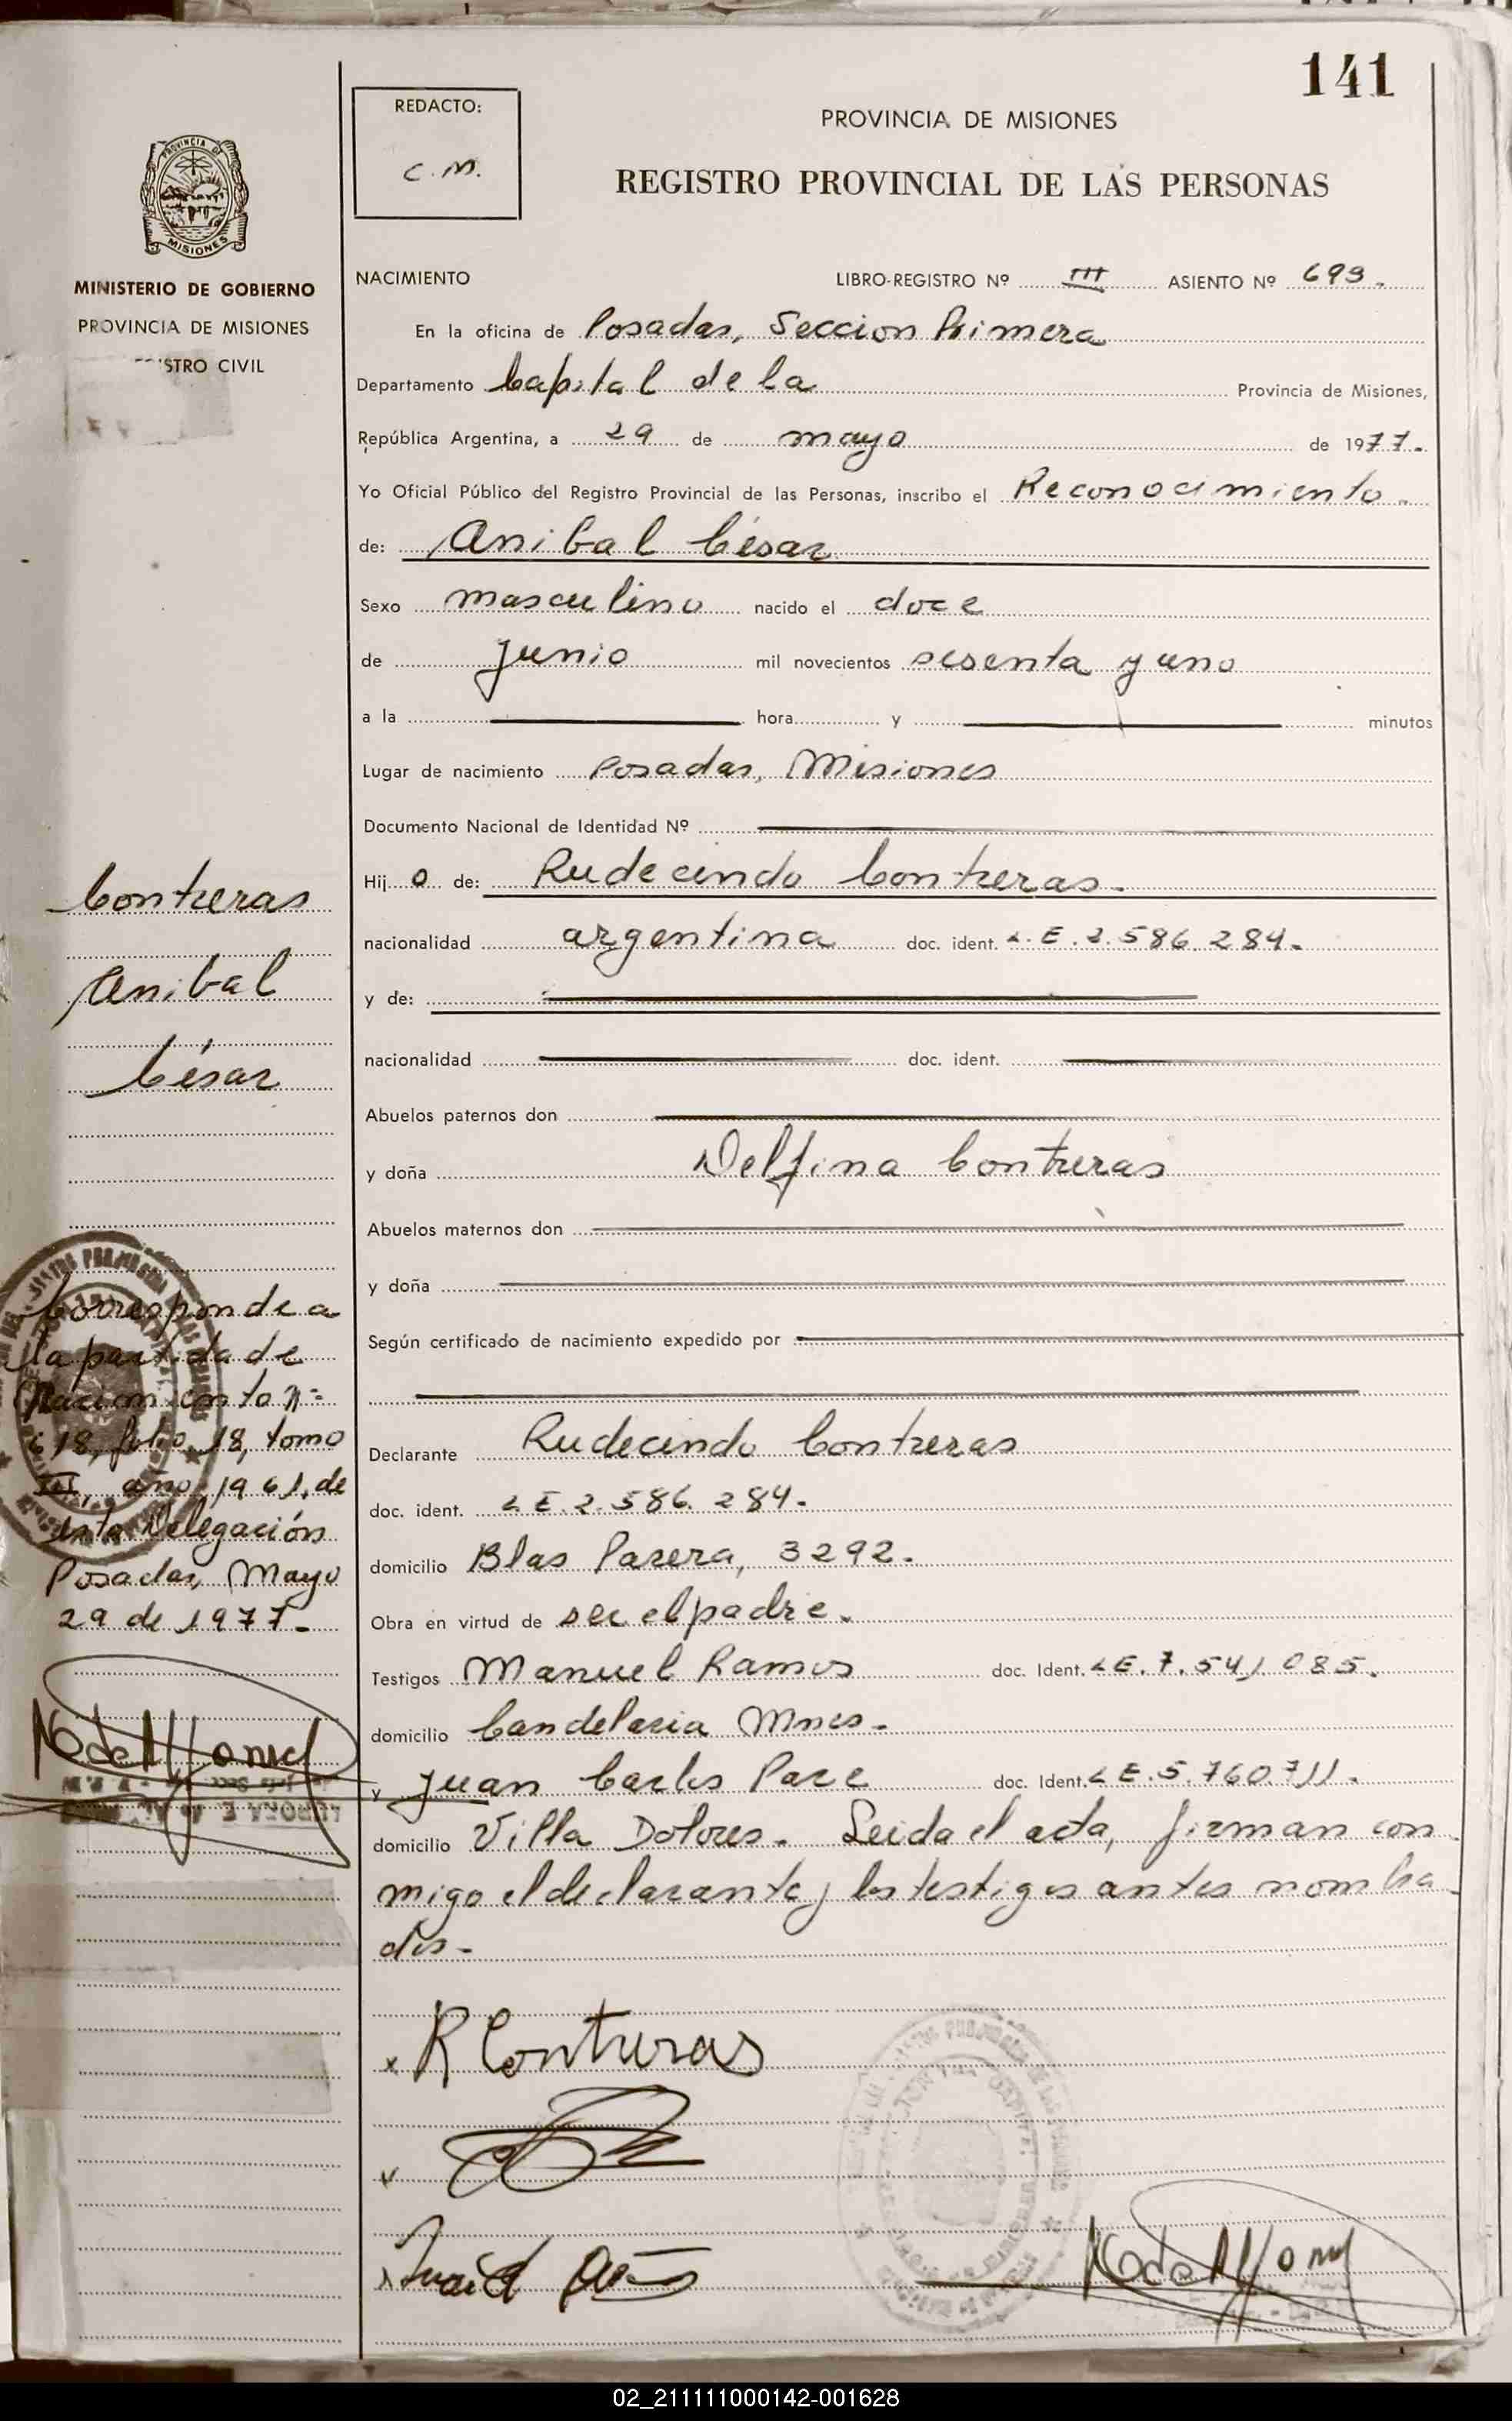 141
REDACTO:
C. M.
PROVINCIA DE MISIONES
REGISTRO PROVINCIAL DE LAS PERSONAS
MINISTERIO DE GOBIERNO
PROVINCIA DE MISIONES
STRO CIVIL
NACIMIENTO LIBRO-REGISTRO Nº III ASIENTO Nº 693.
En la oficina de Posadas, Seccion Primera
Departamento Capital de la Provincia de Misiones,
República Argentina, a 29 de mayo de 1977.
Yo Oficial Público del Registro Provincial de las Personas, inscribo el Reconocimiento.
de: Anibal César
Sexo masculino nacido el doce
de junio mil novecientos sesenta y uno
a la hora y minutos
Lugar de nacimiento Posadas, Misiones
Documento Nacional de Identidad Nº
Hijo de: Rudecindo Contreras.
nacionalidad argentina doc. ident. L.E. 2.586.284.
y de:
nacionalidad doc. ident.
Abuelos paternos don
y doña Delfina Contreras
Abuelos maternos don
y doña
Según certificado de nacimiento expedido por
Declarante Rudecindo Contreras
doc. ident. L.E. 2.586.284.
domicilio Blas Parera, 3292.
Obra en virtud de ser el padre.
Testigos Manuel Ramos doc. Ident. L.E. 7.541.085.
domicilio Candelaria Mnes.
y Juan Carlos Pare doc. Ident. L.E. 5.760.711.
domicilio Villa Dolores. Leida el acta, firman con
migo el declarante y los testigos antes nombra
dos.
Contreras
Anibal
César
Corresponde a
la partida de
Nacimiento Nº
618, folio 18, tomo
III, año 1961, de
esta Delegación
Posadas, Mayo
29 de 1977.
R Contreras
02_211111000142-001628